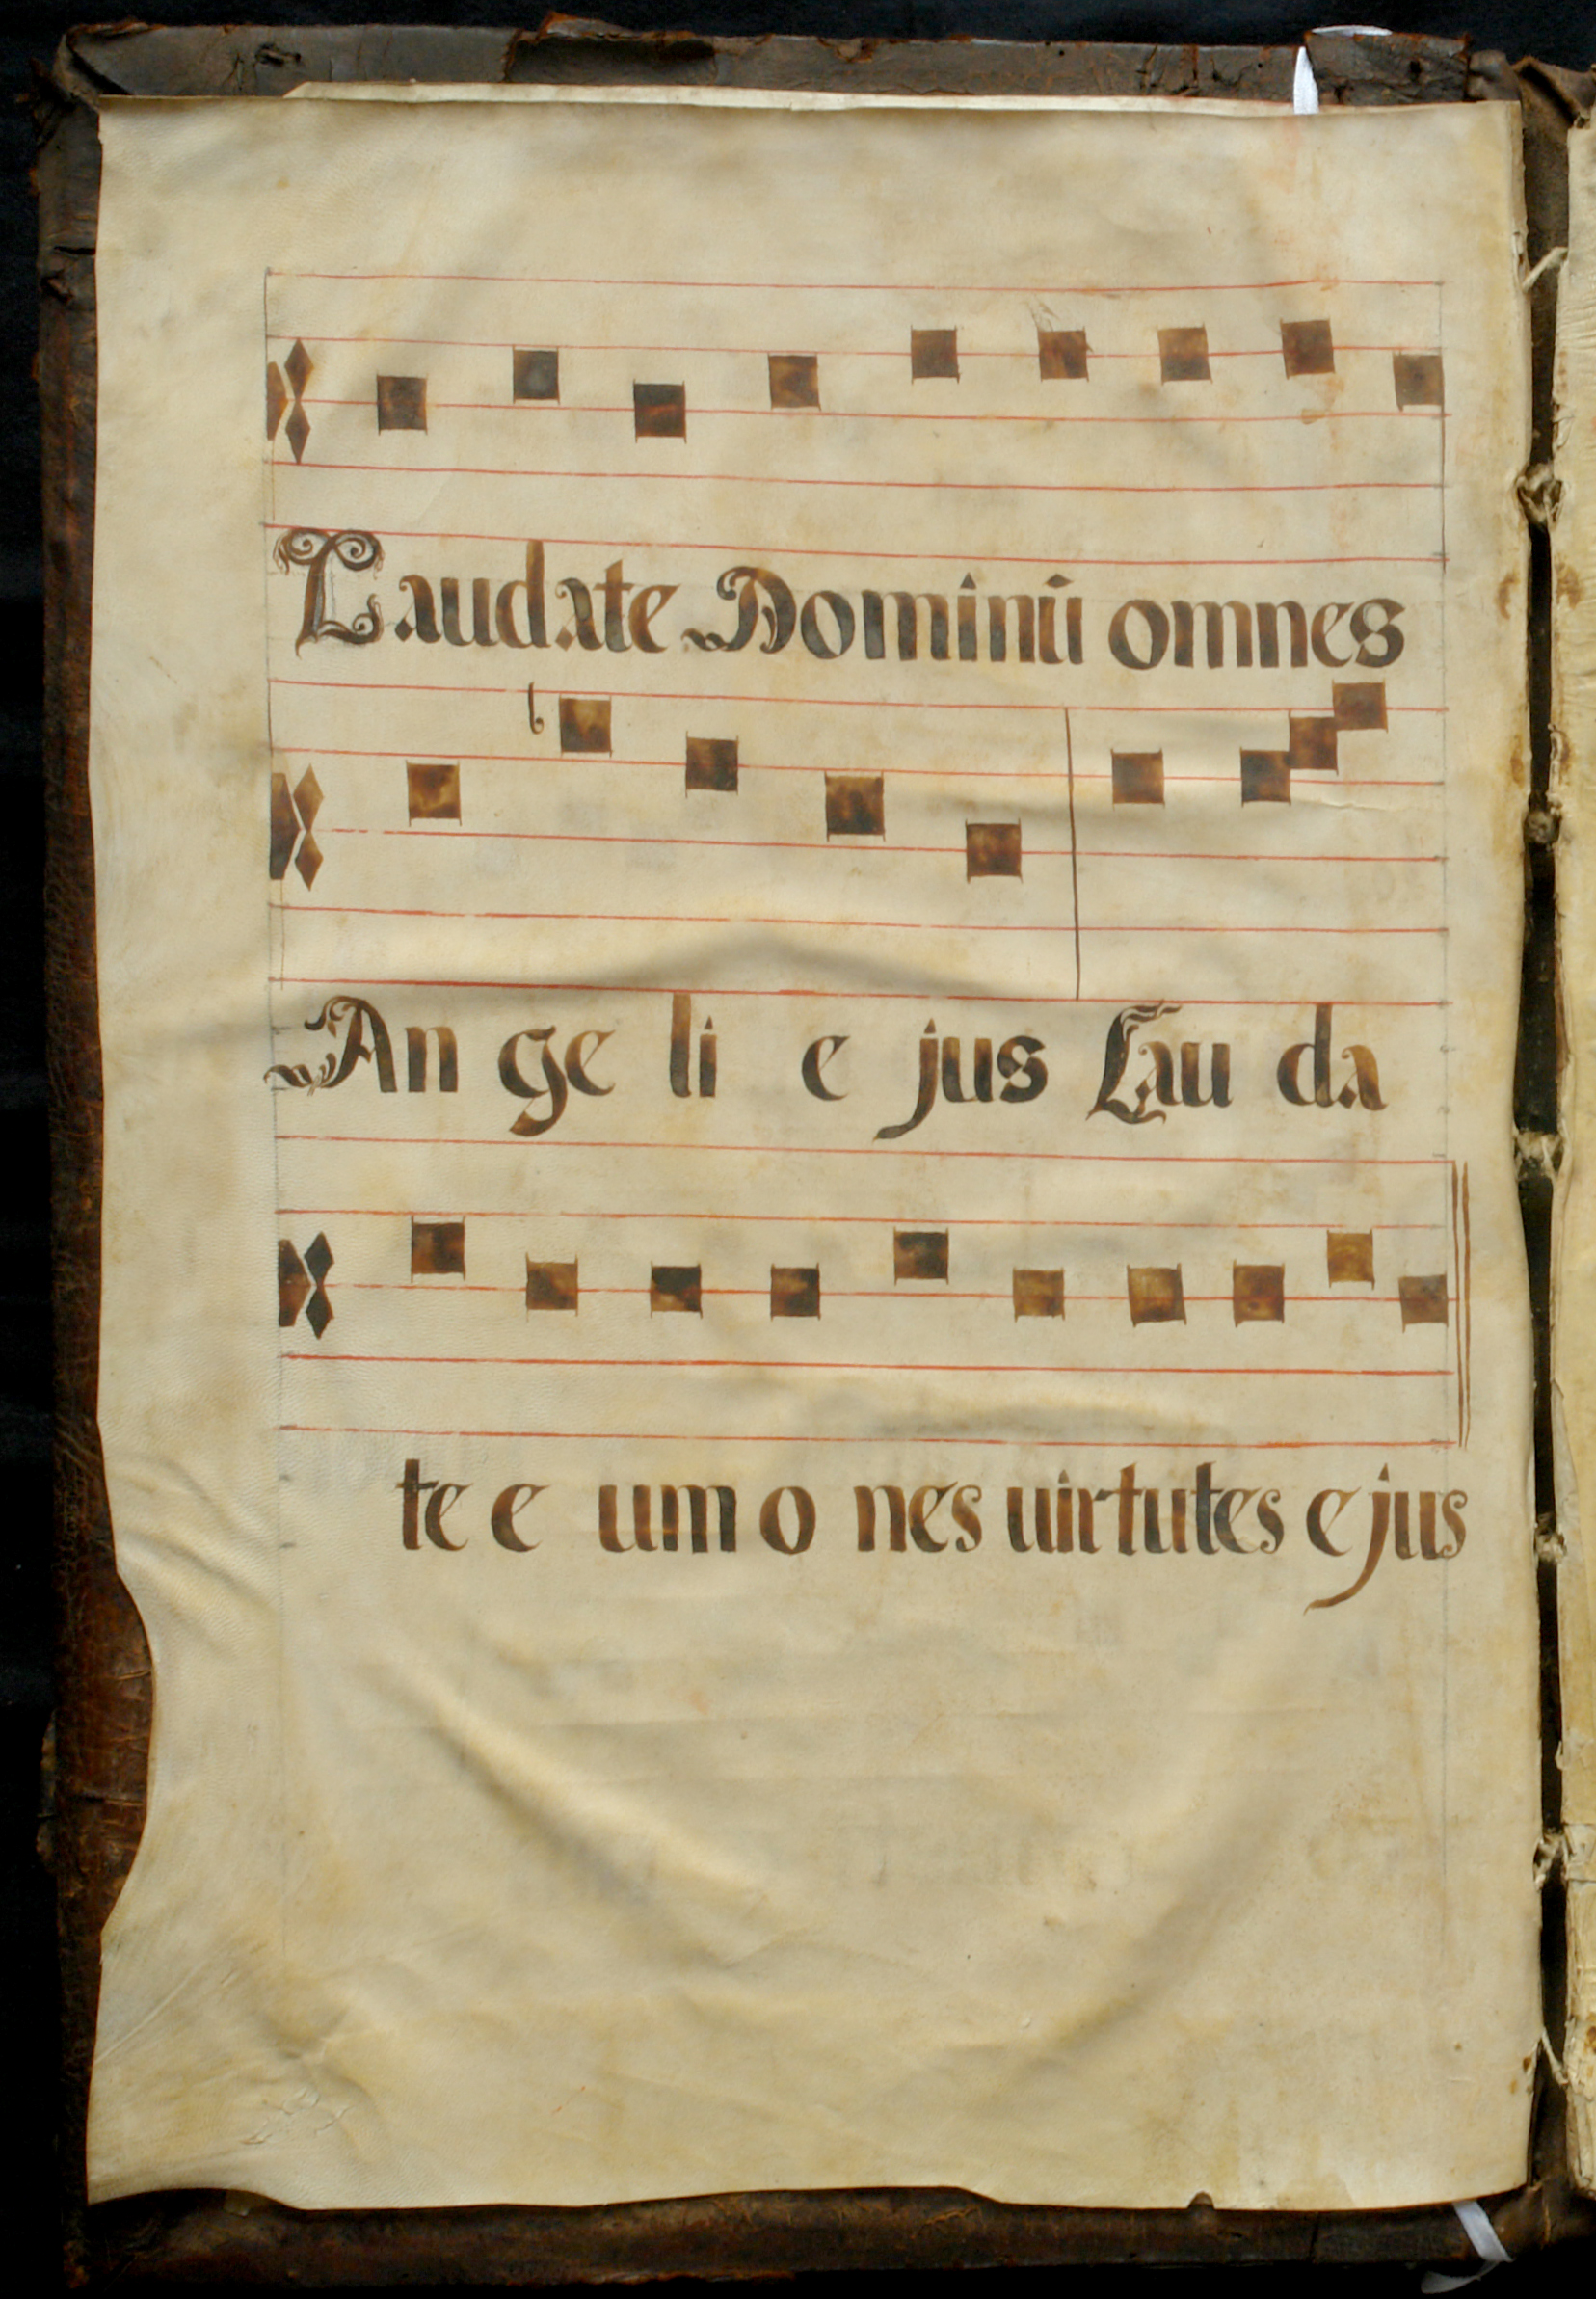 Laudate Dominū omnes
An ge li e jus Lau da
te e um o nes uirtutes ejus